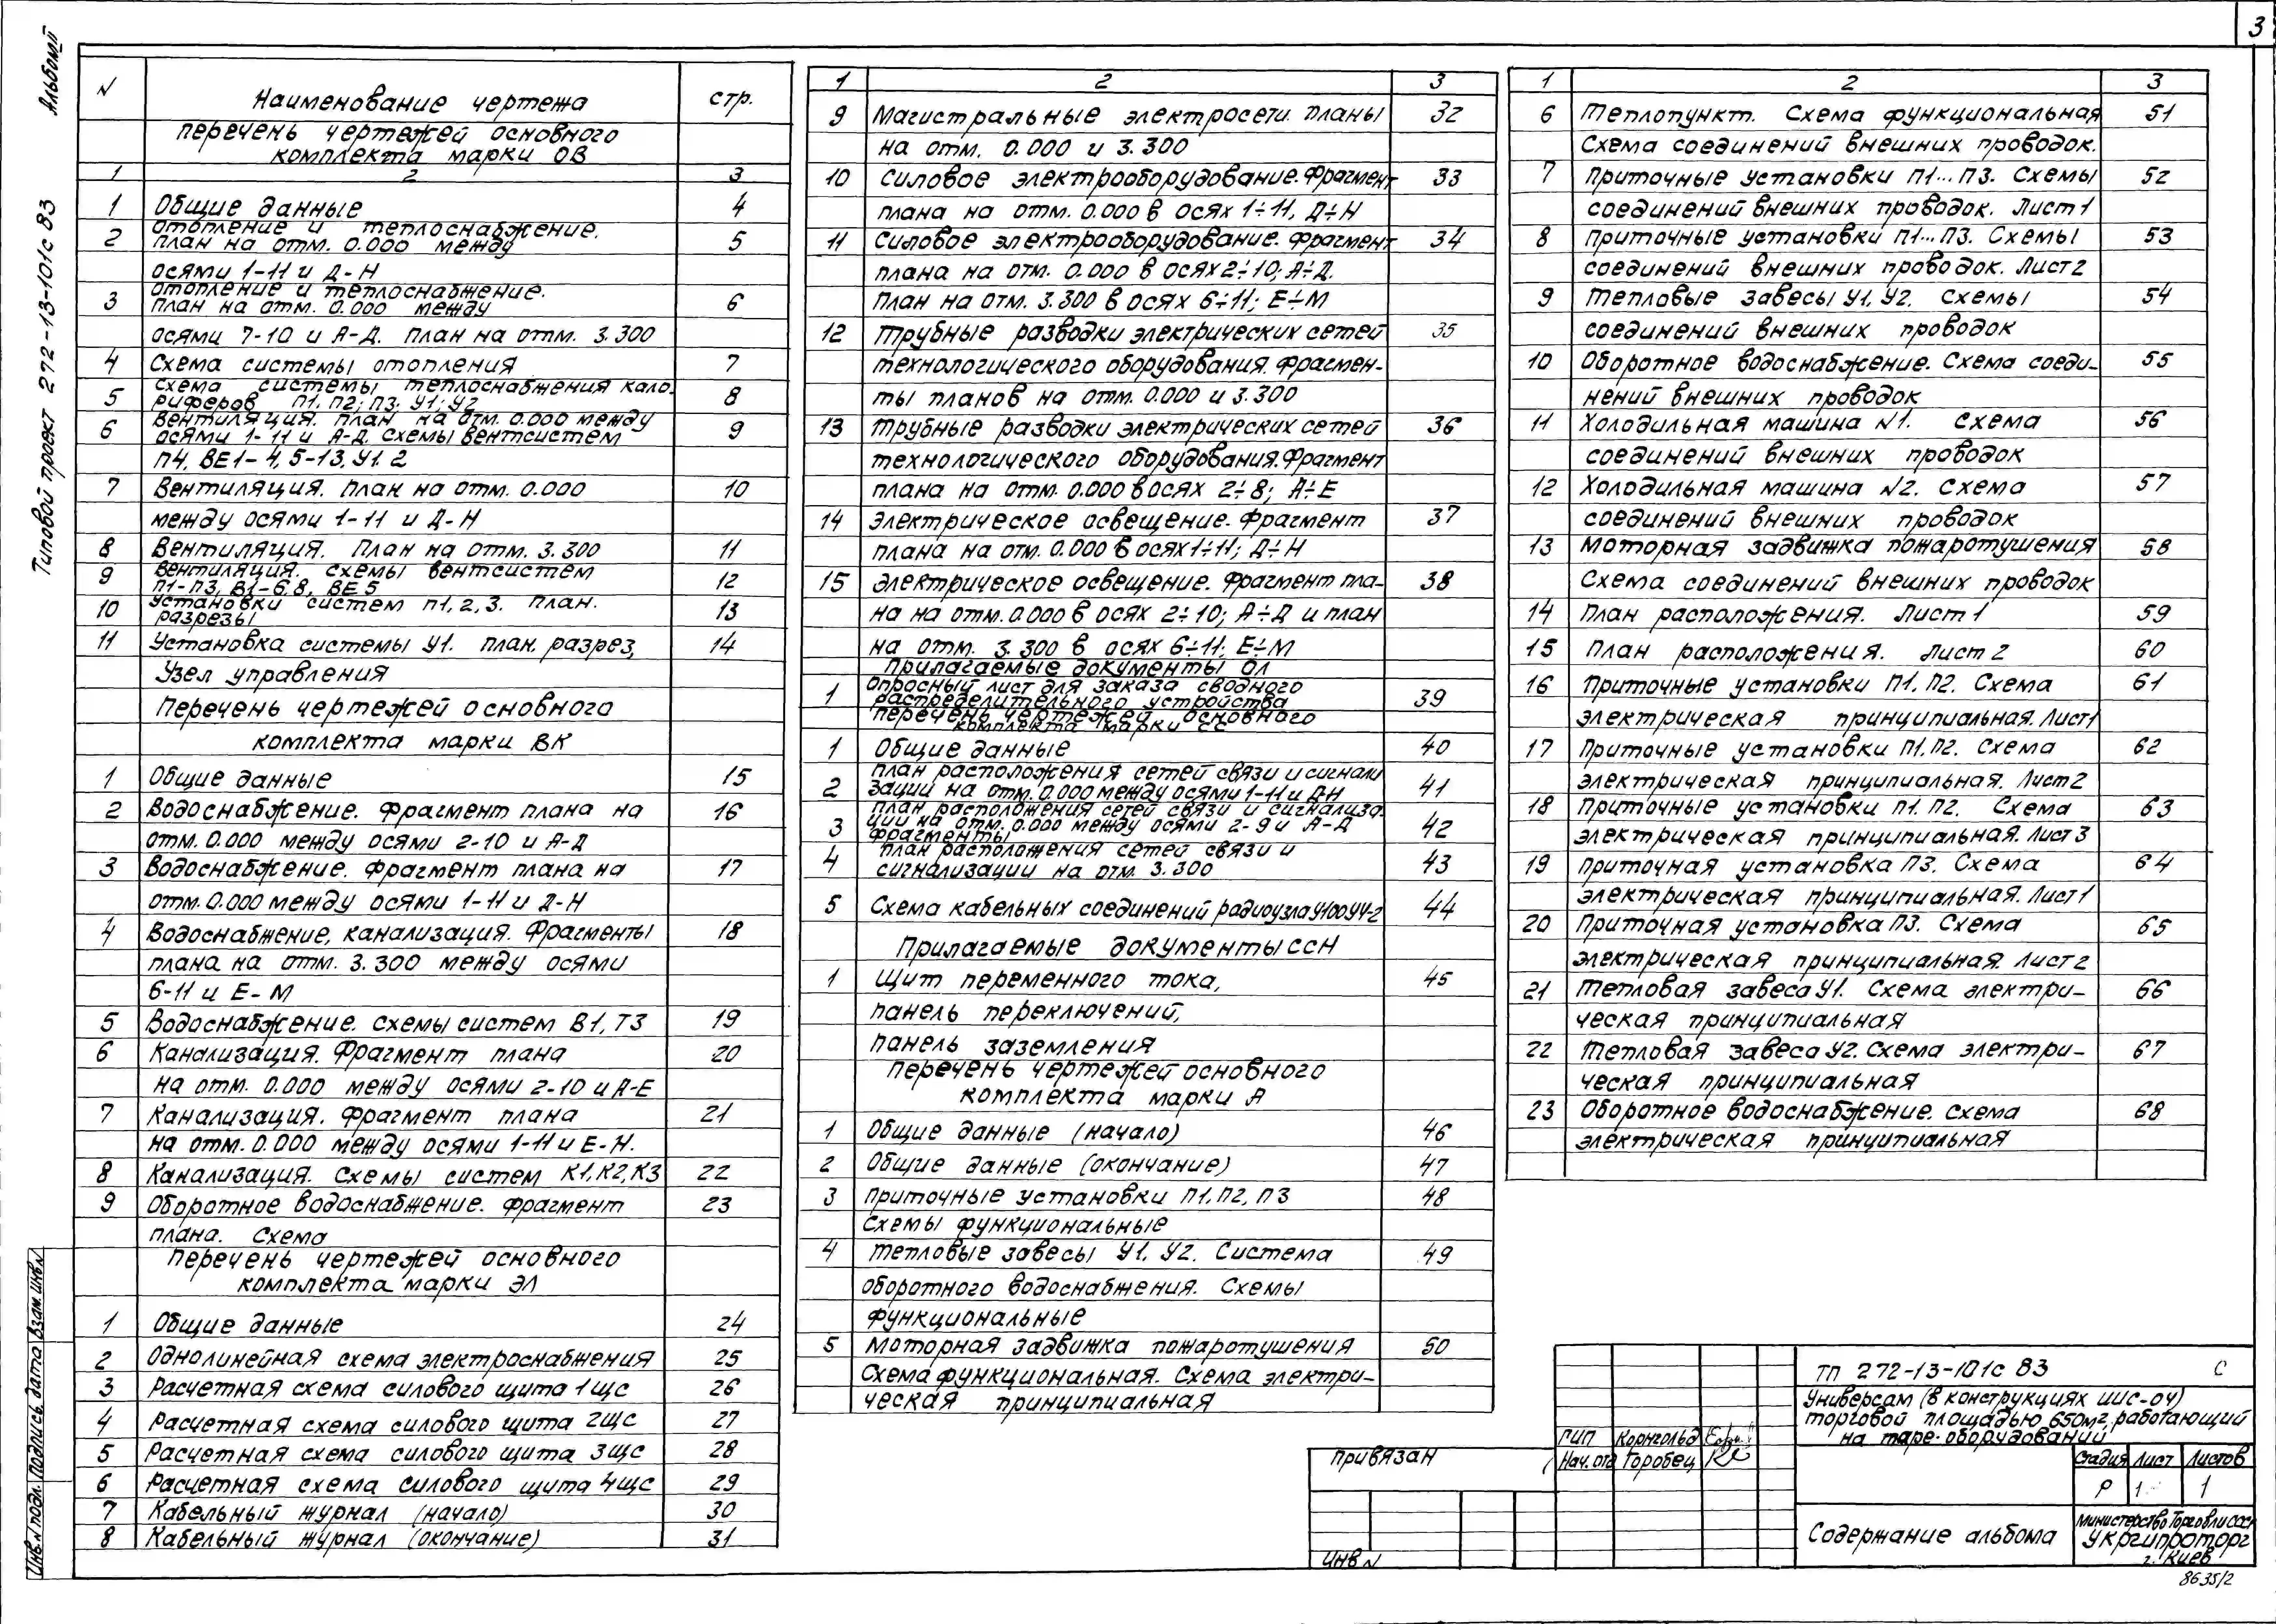 3
Альбом II
Типовой проект 272-13-101с 83
N Наименование чертежа стр.
Перечень чертежей основного
комплекта марки ОВ
1 2 3
1 Общие данные 4
2 Отопление и теплоснабжение. 5
План на отм. 0.000 между
осями 1-11 и Д-Н
3 Отопление и теплоснабжение. 6
План на отм. 0.000 между
осями 7-10 и А-Д. План на отм. 3.300
4 Схема системы отопления 7
5 Схема системы теплоснабжения кало- 8
риферов П1, П2; П3; У1; У2
6 Вентиляция. План на отм. 0.000 между 9
осями 1-11 и А-Д. Схемы вентсистем
П4, ВЕ1-4, 5-13, У1. 2
7 Вентиляция. План на отм. 0.000 10
между осями 1-11 и Д-Н
8 Вентиляция. План на отм. 3.300 11
9 Вентиляция. Схемы вентсистем 12
П1-П3, В1-6.8, ВЕ5
10 Установки систем П1, 2, 3. План. 13
разрезы
11 Установка системы У1. План. разрез, 14
Узел управления
Перечень чертежей основного
комплекта марки ВК
1 Общие данные 15
2 Водоснабжение. Фрагмент плана на 16
отм. 0.000 между осями 2-10 и А-Д
3 Водоснабжение. Фрагмент плана на 17
отм. 0.000 между осями 1-11 и Д-Н
4 Водоснабжение, канализация. Фрагменты 18
плана на отм. 3.300 между осями
6-11 и Е-М
5 Водоснабжение. Схемы систем В1, Т3 19
6 Канализация. Фрагмент плана 20
на отм. 0.000 между осями 2-10 и А-Е
7 Канализация. Фрагмент плана 21
на отм. 0.000 между осями 1-11 и Е-Н.
8 Канализация. Схемы систем К1, К2, К3 22
9 Оборотное водоснабжение. Фрагмент 23
плана. Схема
Перечень чертежей основного
комплекта марки ЭЛ
1 Общие данные 24
2 Однолинейная схема электроснабжения 25
3 Расчетная схема силового щита 1ЩС 26
4 Расчетная схема силового щита 2ЩС 27
5 Расчетная схема силового щита 3ЩС 28
6 Расчетная схема силового щита 4ЩС 29
7 Кабельный журнал (начало) 30
8 Кабельный журнал (окончание) 31
1 2 3
9 Магистральные электросети. Планы 32
на отм. 0.000 и 3.300
10 Силовое электрооборудование. Фрагмент 33
плана на отм. 0.000 в осях 1÷11, Д÷Н
11 Силовое электрооборудование. Фрагмент 34
плана на отм. 0.000 в осях 2÷10; А÷Д.
План на отм. 3.300 в осях 6÷11; Е÷М
12 Трубные разводки электрических сетей 35
технологического оборудования. Фрагмен-
ты планов на отм. 0.000 и 3.300
13 Трубные разводки электрических сетей 36
технологического оборудования. Фрагмент
плана на отм. 0.000 в осях 2÷8; А÷Е
14 Электрическое освещение. Фрагмент 37
плана на отм. 0.000 в осях 1÷11; Д÷Н
15 Электрическое освещение. Фрагмент пла- 38
на на отм. 0.000 в осях 2÷10; А÷Д и план
на отм. 3.300 в осях 6÷11; Е÷М
Прилагаемые документы ОЛ
1 Опросный лист для заказа сводного 39
распределительного устройства
Перечень чертежей основного
комплекта марки СС
1 Общие данные 40
2 План расположения сетей связи и сигнали 41
зации на отм. 0.000 между осями 1-11 и Д-Н
3 План расположения сетей связи и сигнализа- 42
ции на отм. 0.000 между осями 2-9 и А-Д
фрагменты
4 План расположения сетей связи и 43
сигнализации на отм. 3.300
5 Схема кабельных соединений радиоузла У100У4-2 44
Прилагаемые документы ССН
1 Щит переменного тока, 45
панель переключений,
панель заземления
Перечень чертежей основного
комплекта марки А
1 Общие данные (начало) 46
2 Общие данные (окончание) 47
3 Приточные установки П1, П2, П3 48
Схемы функциональные
4 Тепловые завесы У1. У2. Система 49
оборотного водоснабжения. Схемы
функциональные
5 Моторная задвижка пожаротушения 50
Схема функциональная. Схема электри-
ческая принципиальная
1 2 3
6 Теплопункт. Схема функциональная 51
Схема соединений внешних проводок.
7 Приточные установки П1...П3. Схемы 52
соединений внешних проводок. Лист 1
8 Приточные установки П1...П3. Схемы 53
соединений внешних проводок. Лист 2
9 Тепловые завесы У1. У2. Схемы 54
соединений внешних проводок
10 Оборотное водоснабжение. Схема соеди- 55
нений внешних проводок
11 Холодильная машина N1. Схема 56
соединений внешних проводок
12 Холодильная машина N2. Схема 57
соединений внешних проводок
13 Моторная задвижка пожаротушения 58
Схема соединений внешних проводок
14 План расположения. Лист 1 59
15 План расположения. Лист 2 60
16 Приточные установки П1. П2. Схема 61
электрическая принципиальная. Лист 1
17 Приточные установки П1. П2. Схема 62
электрическая принципиальная. Лист 2
18 Приточные установки П1. П2. Схема 63
электрическая принципиальная. Лист 3
19 Приточная установка П3. Схема 64
электрическая принципиальная. Лист 1
20 Приточная установка П3. Схема 65
электрическая принципиальная. Лист 2
21 Тепловая завеса У1. Схема электри- 66
ческая принципиальная
22 Тепловая завеса У2. Схема электри- 67
ческая принципиальная
23 Оборотное водоснабжение. Схема 68
электрическая принципиальная
Инв. N подл. Подпись, дата Взам. инв. N
Привязан
Инв N
ГИП Корнгольд
Нач. отд Горобец
ТП 272-13-101с 83 С
Универсам (в конструкциях ИИС-04)
торговой площадью 650м2, работающий
на таре-оборудовании
Стадия Лист Листов
Р 1 1
Содержание альбома
Министерство Торговли СССР
Укргипроторг
г. Киев
8635/2